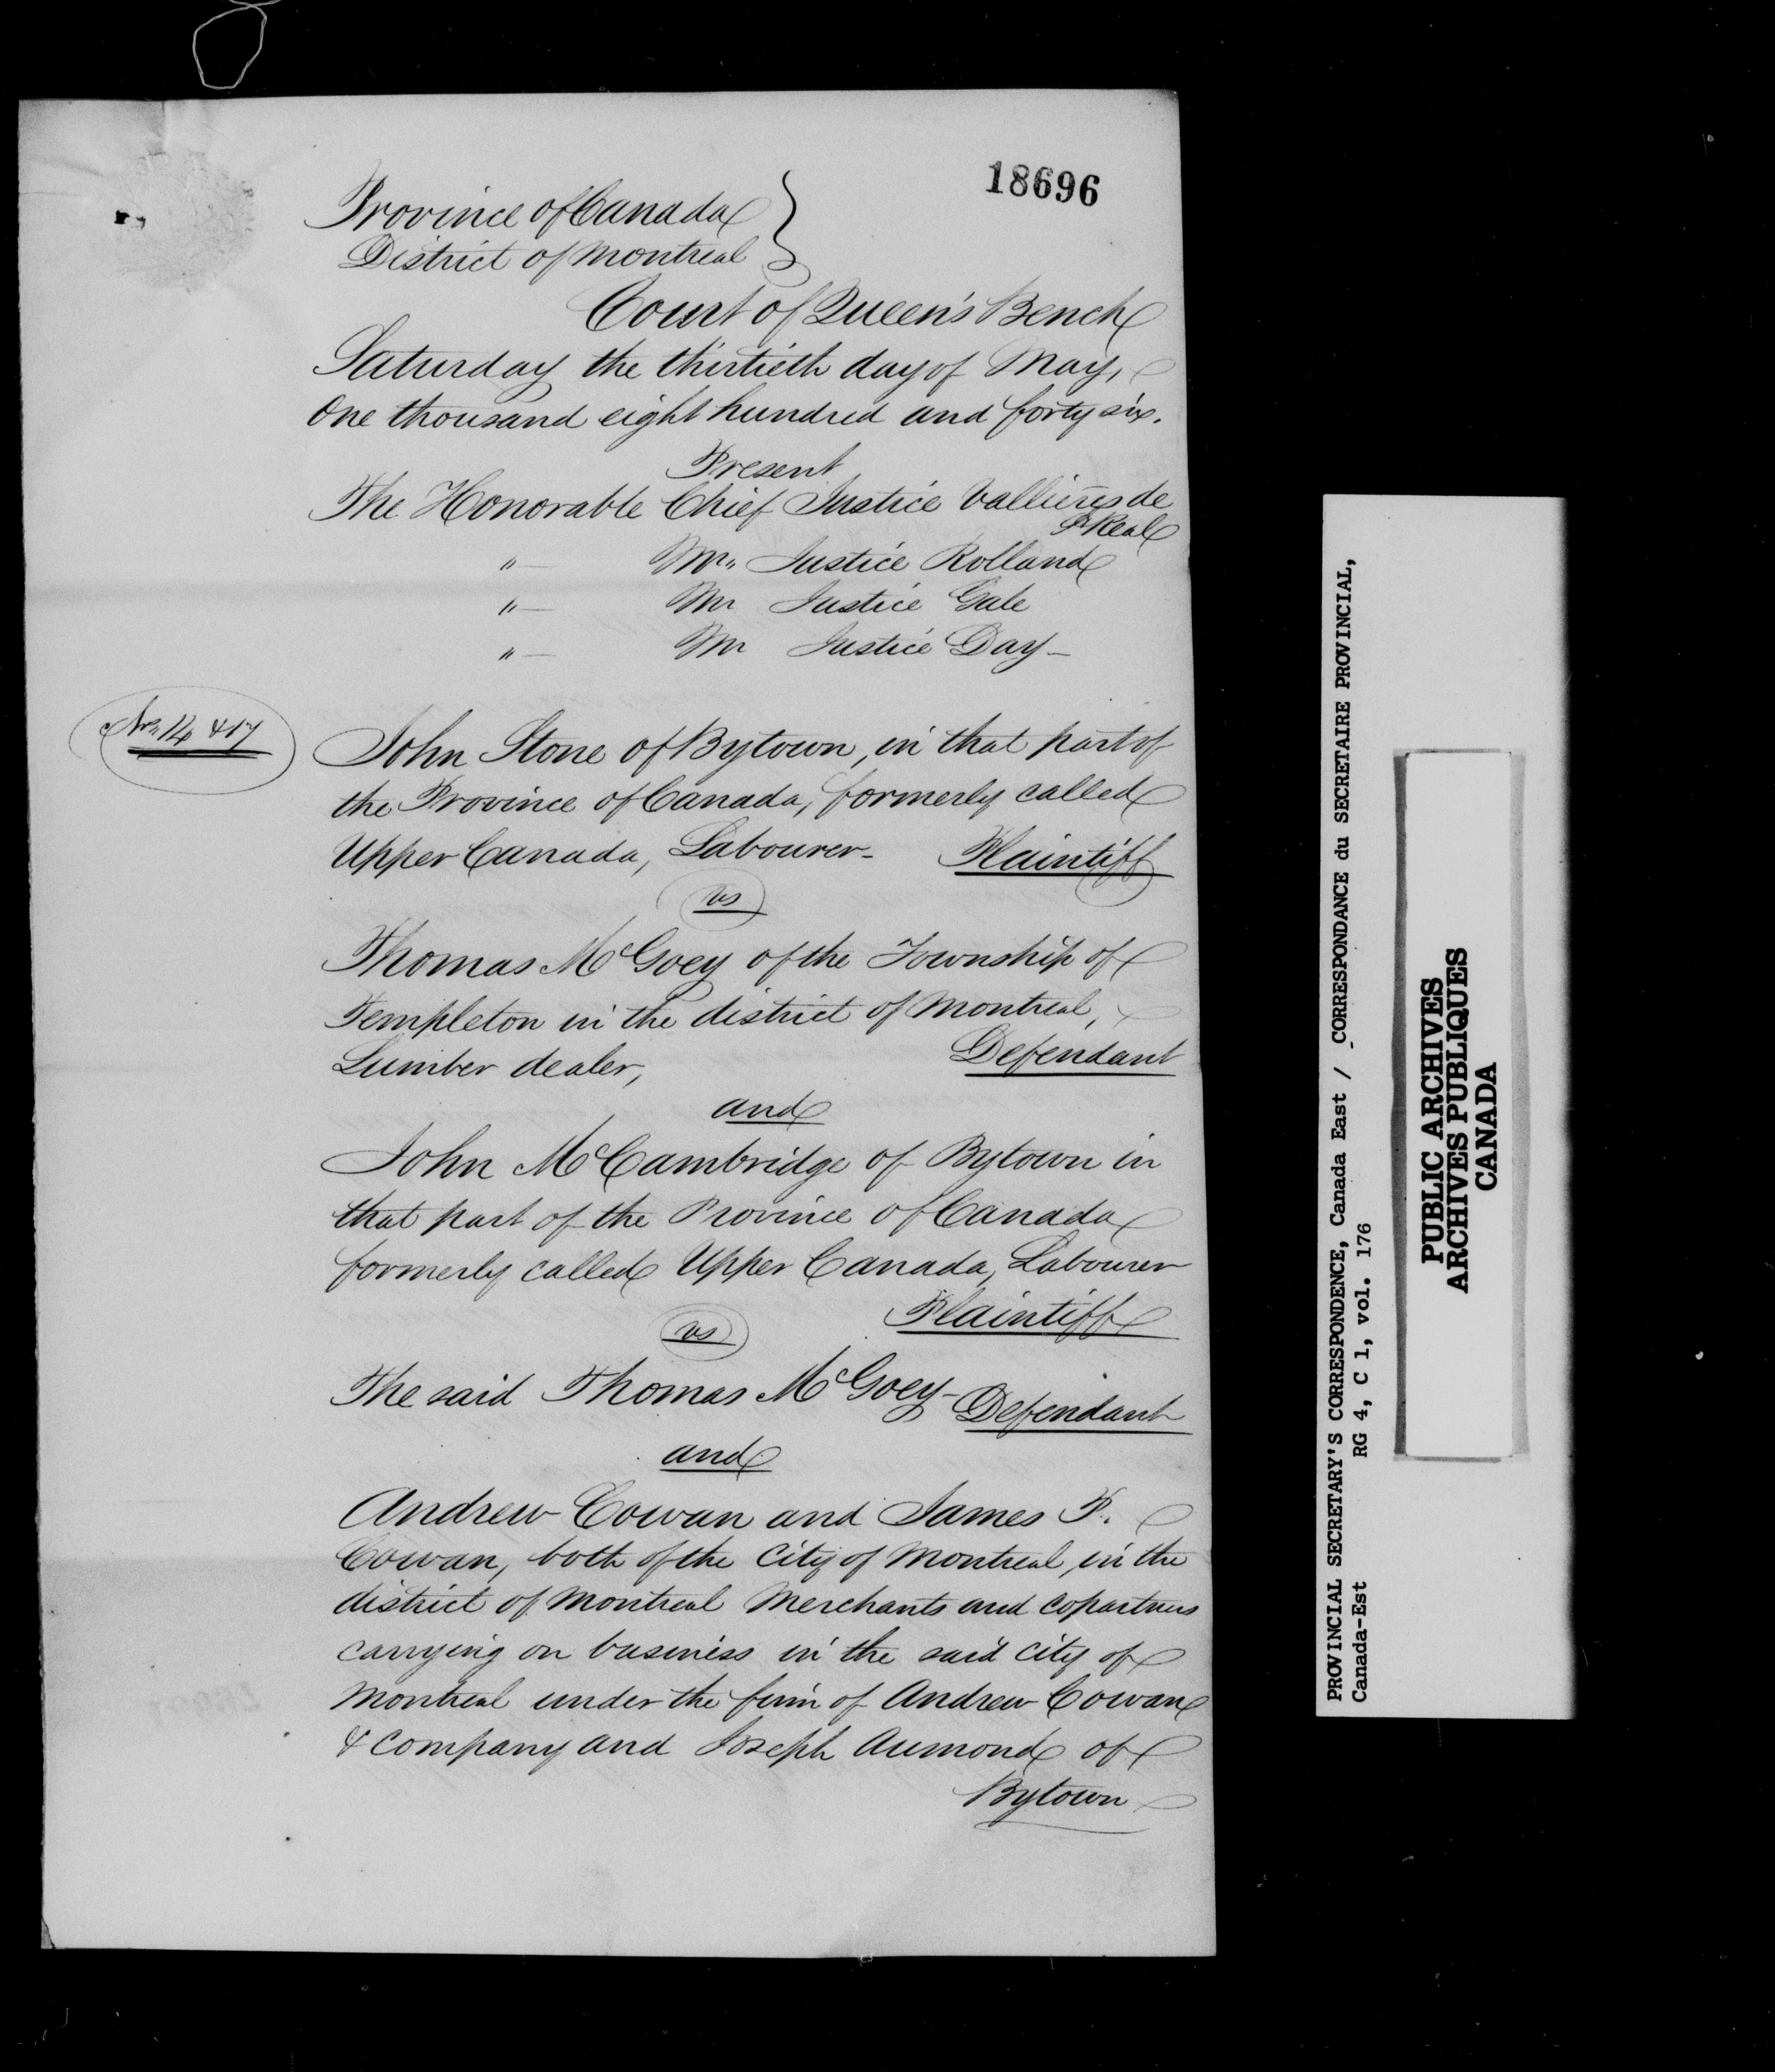 18696
Province of Canada
District of Montreal
Court of Queen's Bench
Saturday the thirtieth day of May,
One thousand eight hundred and forty six.
Present
The Honorable Chief Justice Vallieres de
St Real
"— Mr. Justice Rolland
"— Mr Justice Gale
"— Mr Justice Day —
No. 14 & 17
John Stone of Bytown, in that part of
the Province of Canada, formerly called
Upper Canada, Labourer - Plaintiff
vs
Thomas McGoey of the Township of
Templeton in the district of Montreal,
Lumber dealer, Defendant
and
John McCambridge of Bytown in
that part of the Province of Canada
formerly called Upper Canada, Labourer
Plaintiff
vs
The said Thomas McGoey - Defendant
and
Andrew Cowan and James P.
Cowan, both of the City of Montreal, in the
district of Montreal Merchants and copartners
carrying on business in the said city of
Montreal under the firm of Andrew Cowan
& Company and Joseph Aumond of
Bytown
PROVINCIAL SECRETARY'S CORRESPONDENCE, Canada East / CORRESPONDANCE du SECRETAIRE PROVINCIAL,
Canada-Est RG 4, C 1, vol. 176
PUBLIC ARCHIVES
ARCHIVES PUBLIQUES
CANADA